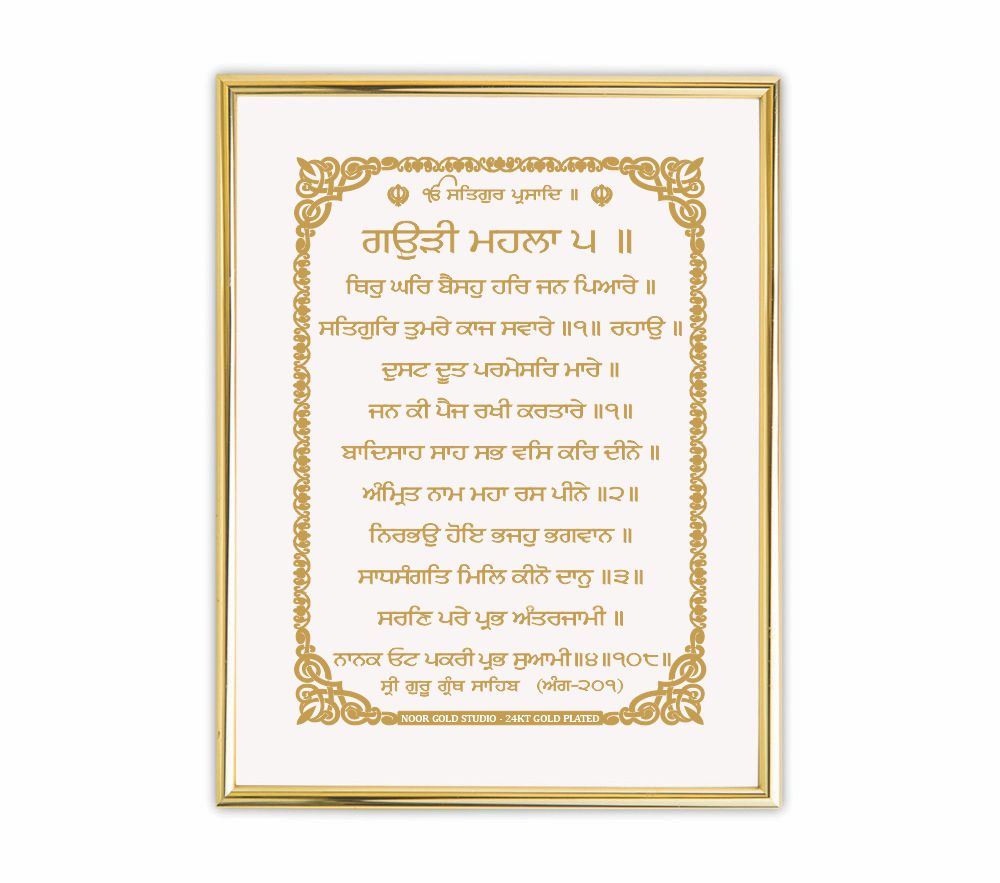 ੴ ਸਤਿਗੁਰ ਪ੍ਰਸਾਦਿ ॥
ਗਉੜੀ ਮਹਲਾ ੫ ॥
ਥਿਰੁ ਘਰਿ ਬੈਸਹੁ ਹਰਿ ਜਨ ਪਿਆਰੇ ॥
ਸਤਿਗੁਰਿ ਤੁਮਰੇ ਕਾਜ ਸਵਾਰੇ ॥੧॥ ਰਹਾਉ ॥
ਦੁਸਟ ਦੂਤ ਪਰਮੇਸਰਿ ਮਾਰੇ ॥
ਜਨ ਕੀ ਪੈਜ ਰਖੀ ਕਰਤਾਰੇ ॥੧॥
ਬਾਦਿਸਾਹ ਸਾਹ ਸਭ ਵਸਿ ਕਰਿ ਦੀਨੇ ॥
ਅੰਮ੍ਰਿਤ ਨਾਮ ਮਹਾ ਰਸ ਪੀਨੇ ॥੨॥
ਨਿਰਭਉ ਹੋਇ ਭਜਹੁ ਭਗਵਾਨ ॥
ਸਾਧਸੰਗਤਿ ਮਿਲਿ ਕੀਨੋ ਦਾਨੁ ॥੩॥
ਸਰਣਿ ਪਰੇ ਪ੍ਰਭ ਅੰਤਰਜਾਮੀ ॥
ਨਾਨਕ ਓਟ ਪਕਰੀ ਪ੍ਰਭ ਸੁਆਮੀ॥੪॥੧੦੮॥
ਸ੍ਰੀ ਗੁਰੂ ਗ੍ਰੰਥ ਸਾਹਿਬ (ਅੰਗ-੨੦੧)
NOOR GOLD STUDIO - 24KT GOLD PLATED